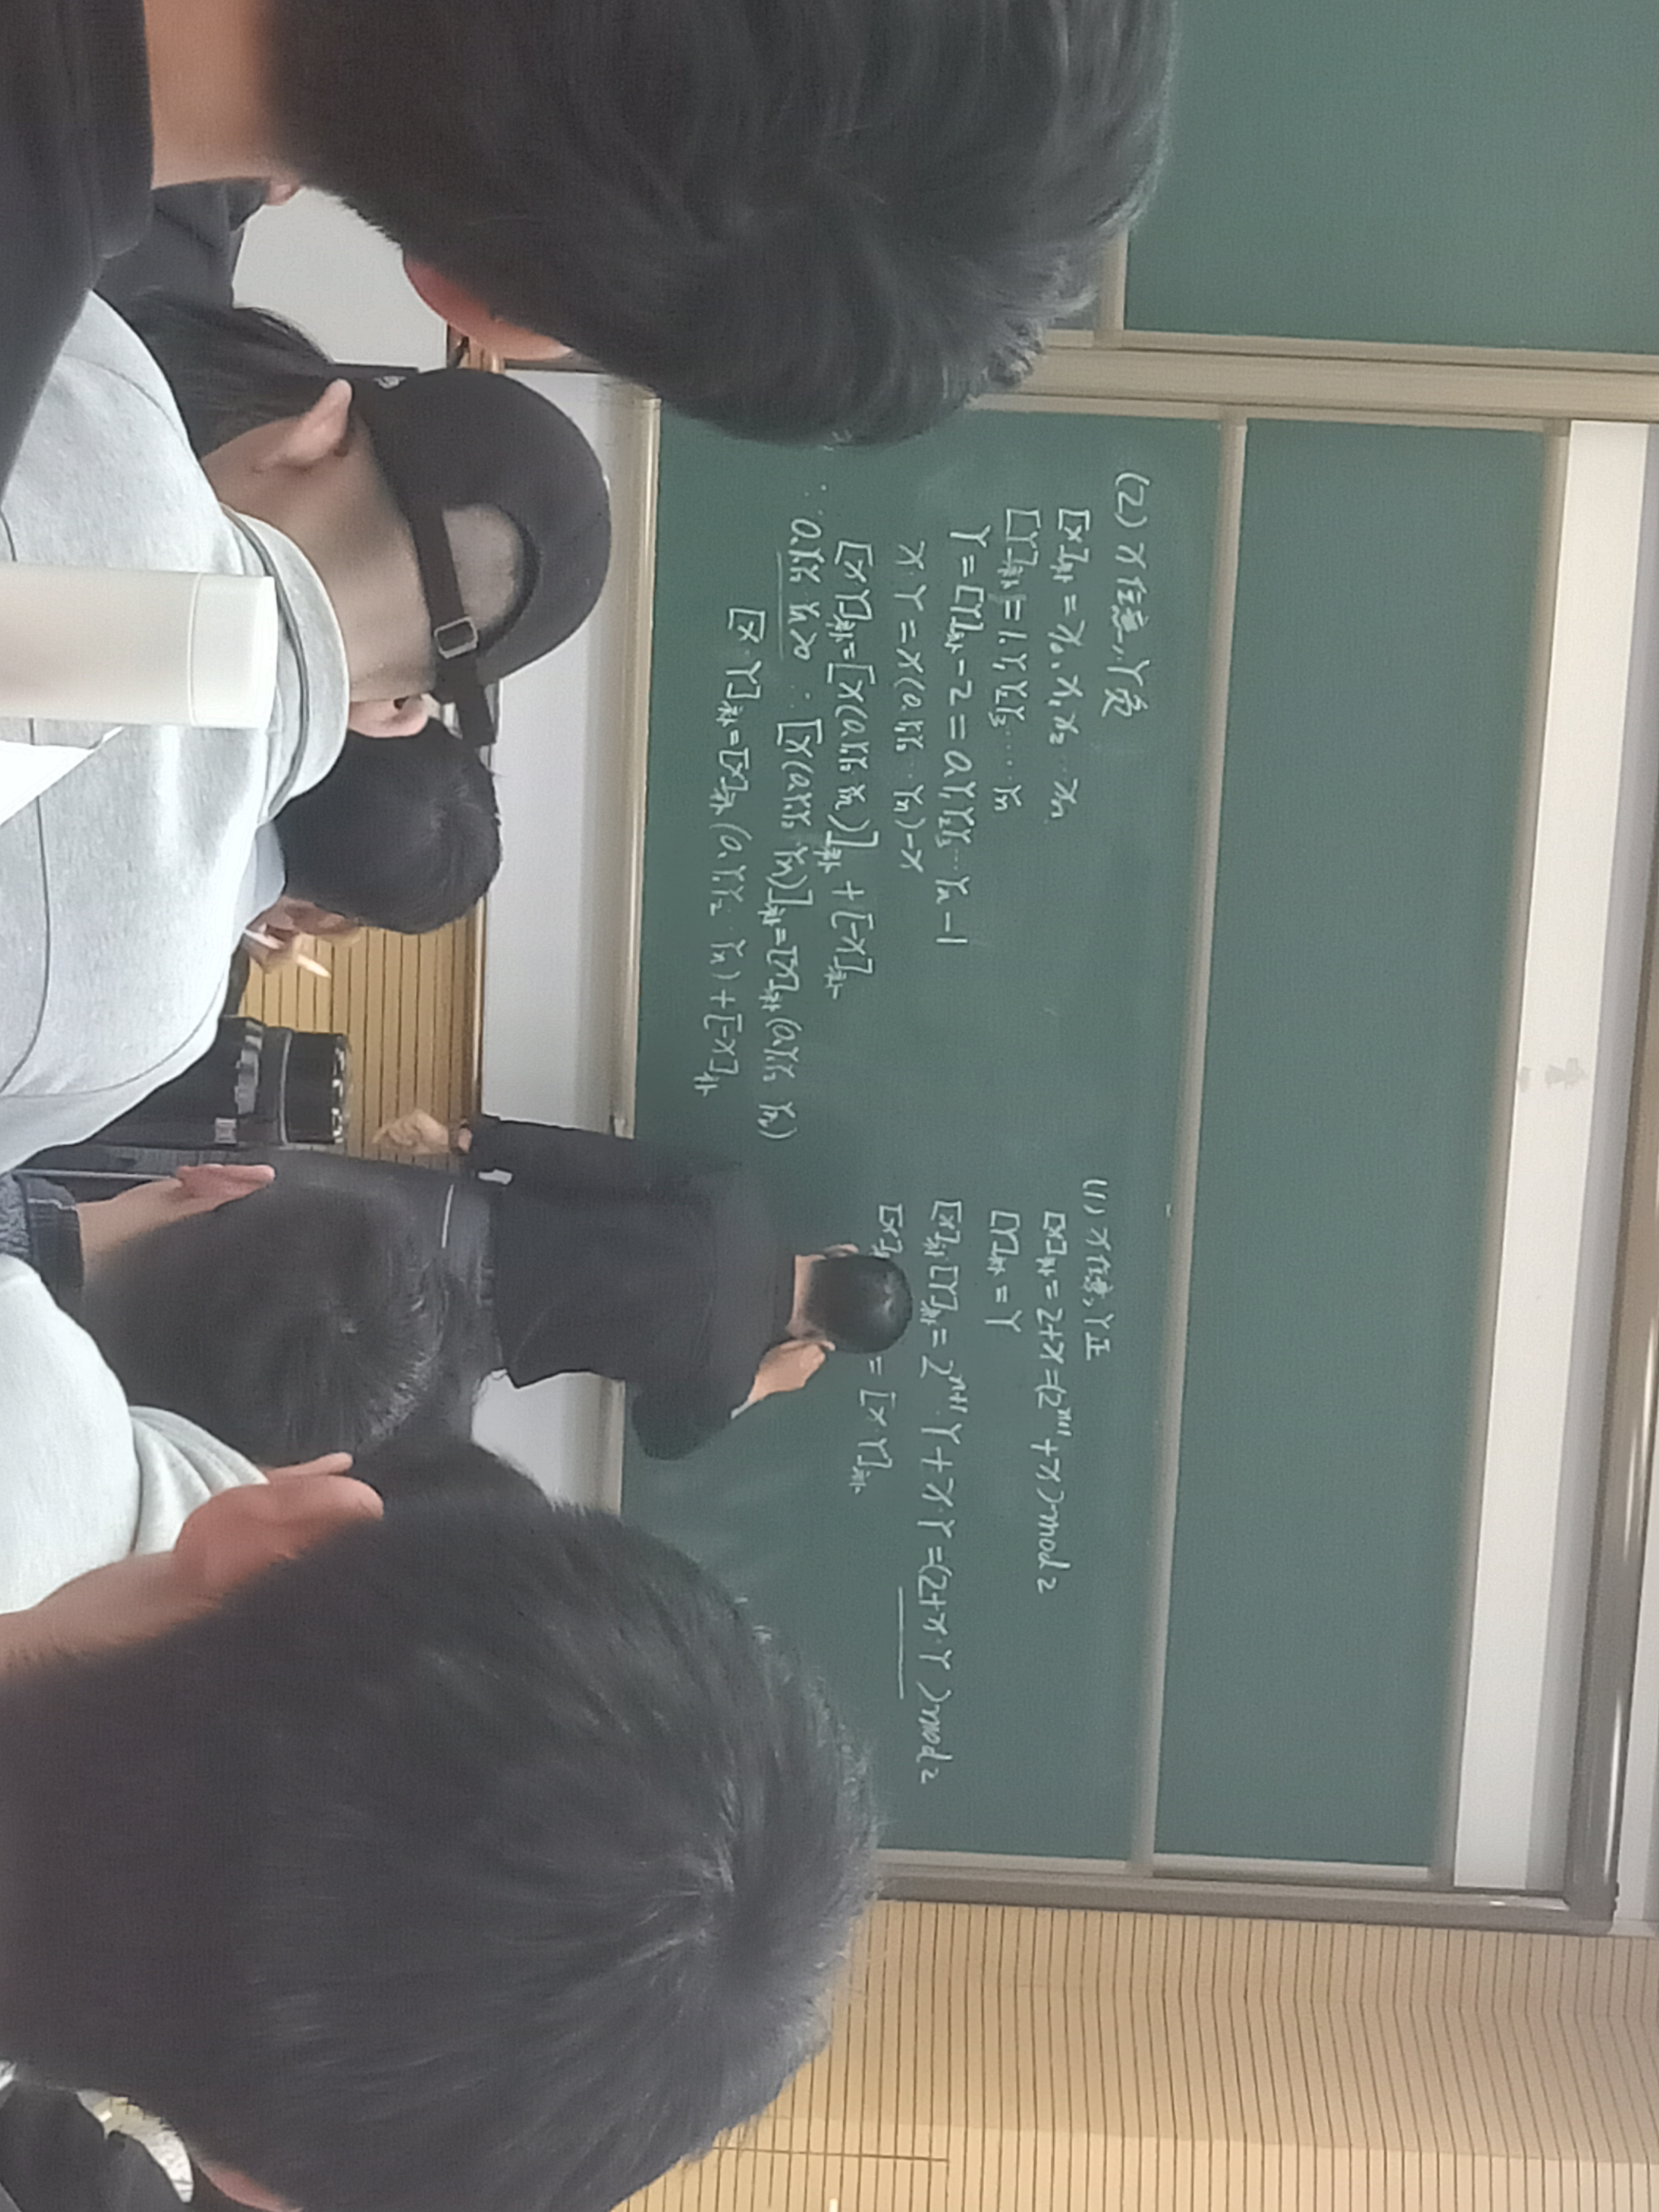 (2) X任意,Y负
[X]补=X₀.X₁X₂…Xn
[Y]补=1.Y₁Y₂Y₃……Yn
Y=[Y]补-2=0.Y₁Y₂Y₃…Yn-1
X·Y=X(0.Y₁Y₂…Yn)-X
[X·Y]补=[X(0.Y₁Y₂…Yn)]补+[-X]补
∵0.Y₁Y₂…Yn>0 ∴[X(0.Y₁Y₂…Yn)]补=[X]补(0.Y₁Y₂…Yn)
[X·Y]补=[X]补(0.Y₁Y₂…Yn)+[-X]补
(1) X任意,Y正
[X]补=2+X=(2ⁿ⁺¹+X) mod 2
[Y]补=Y
[X]补·[Y]补=2ⁿ⁺¹·Y+X·Y=(2+X·Y) mod 2
[X] =[X·Y]补